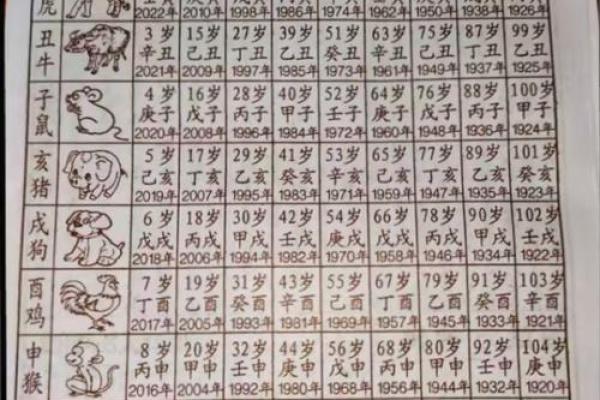 虎
2022年 2010年 1998年 1986年 1974年 1962年 1950年 1938年 1926年
丑牛
3岁 15岁 27岁 39岁 51岁 63岁 75岁 87岁 99岁
辛丑 己丑 丁丑 乙丑 癸丑 辛丑 己丑 丁丑 乙丑
2021年 2009年 1997年 1985年 1973年 1961年 1949年 1937年 1925年
子鼠
4岁 16岁 28岁 40岁 52岁 64岁 76岁 88岁 100岁
庚子 戊子 丙子 甲子 壬子 庚子 戊子 丙子 甲子
2020年 2008年 1996年 1984年 1972年 1960年 1948年 1936年 1924年
亥猪
5岁 17岁 29岁 41岁 53岁 65岁 77岁 89岁 101岁
己亥 丁亥 乙亥 癸亥 辛亥 己亥 丁亥 乙亥 癸亥
2019年 2007年 1995年 1983年 1971年 1959年 1947年 1935年 1923年
戌狗
6岁 18岁 30岁 42岁 54岁 66岁 78岁 90岁 102岁
戊戌 丙戌 甲戌 壬戌 庚戌 戊戌 丙戌 甲戌 壬戌
2018年 2006年 1994年 1982年 1970年 1958年 1946年 1934年 1922年
酉鸡
7岁 19岁 31岁 43岁 55岁 67岁 79岁 91岁 103岁
丁酉 乙酉 癸酉 辛酉 己酉 丁酉 乙酉 癸酉 辛酉
2017年 2005年 1993年 1981年 1969年 1957年 1945年 1933年 1921年
申猴
8岁 20岁 32岁 44岁 56岁 68岁 80岁 92岁 104岁
丙申 甲申 壬申 庚申 戊申 丙申 甲申 壬申 庚申
2016年 2004年 1992年 1980年 1968年 1956年 1944年 1932年 1920年